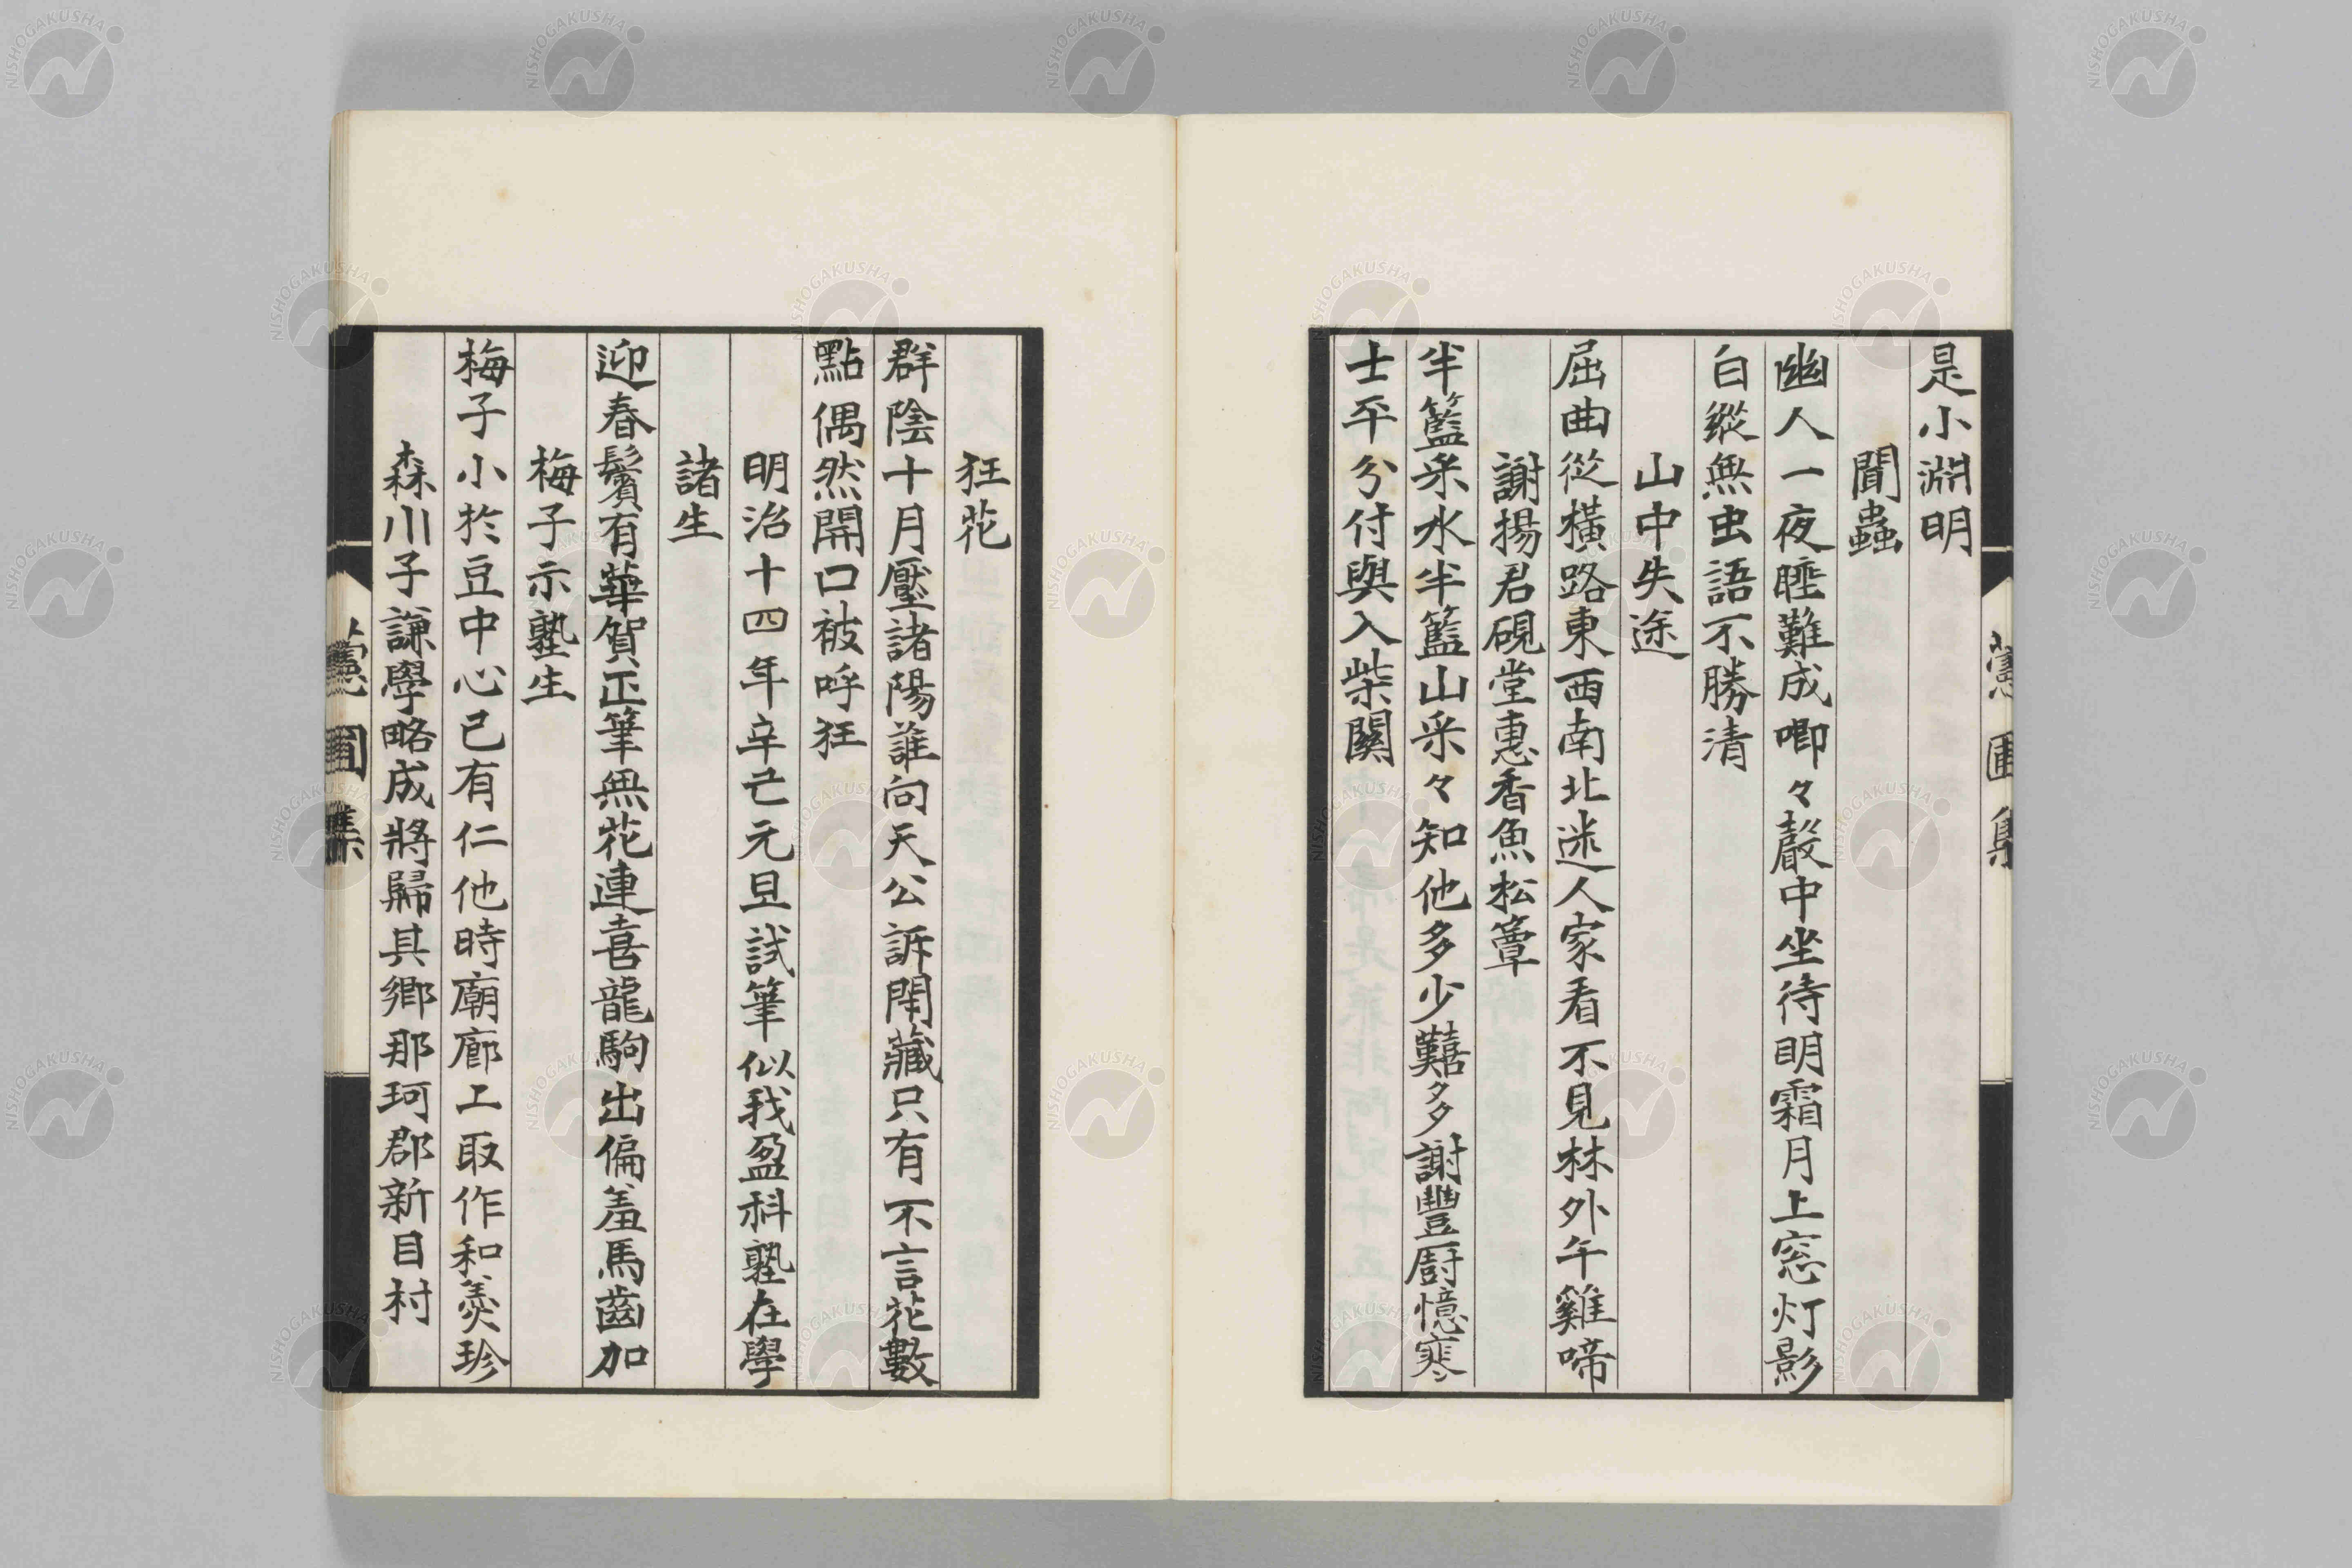 是小淵明
聞蟲
幽人一夜睡難成喞々聲中坐待明霜月上窓灯影
白縱無虫語不勝清
山中失途
屈曲從橫路東西南北迷人家看不見林外午雞啼
謝揚君硯堂惠香魚松蕈
半籃采水半籃山采々知他多少艱多謝豐厨憶寒
士平分付與入柴關
狂花
群陰十月壓諸陽誰向天公訴閉藏只有不言花數
點偶然開口被呼狂
明治十四年辛亡元旦試筆似我盈科塾在學
諸生
迎春鬢有華賀正筆無花連喜龍駒出偏羞馬齒加
梅子示塾生
梅子小於豆中心已有仁他時廟廊上取作和羹珍
森川子謙學略成將歸其鄉那珂郡新目村
圃集
NISHOGAKUSHA